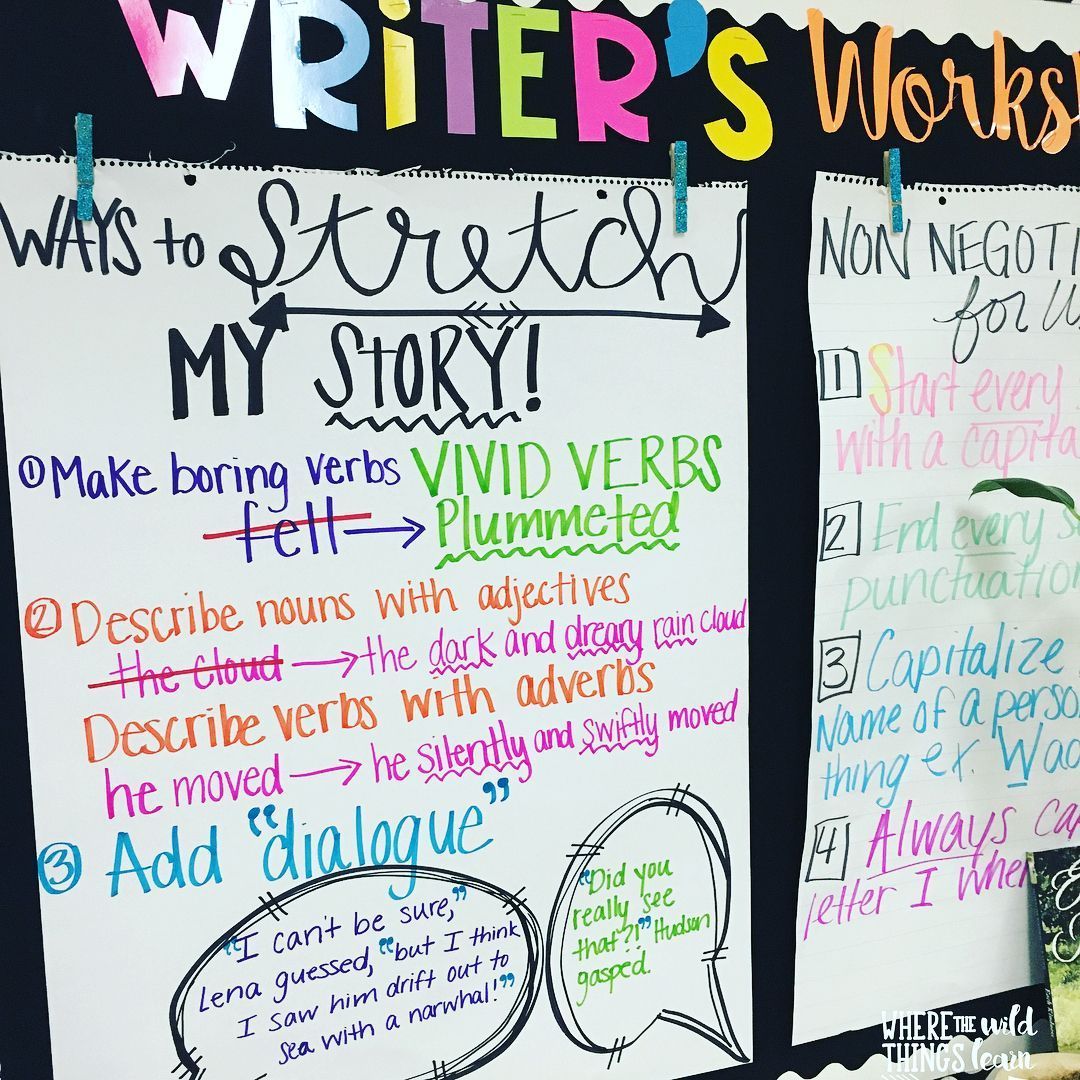 WRiTER'S Works
WAYS to Stretch
MY StORY!
① Make boring verbs VIVID VERBS
fell → Plummeted
② Describe nouns with adjectives
the cloud → the dark and dreary rain cloud
Describe verbs with adverbs
he moved → he silently and swiftly moved
③ Add "dialogue"
"I can't be sure,"
Lena guessed, "but I think
I saw him drift out to
sea with a narwhal!"
"Did you
really see
that?!" Hudson
gasped.
NON NEGOTI
for
1 Start every
with a capita
2 End every s
punctuation
3 Capitalize
Name of a perso
thing ex. Wad
4 Always ca
letter I when
WHERE THE wild
THINGS learn